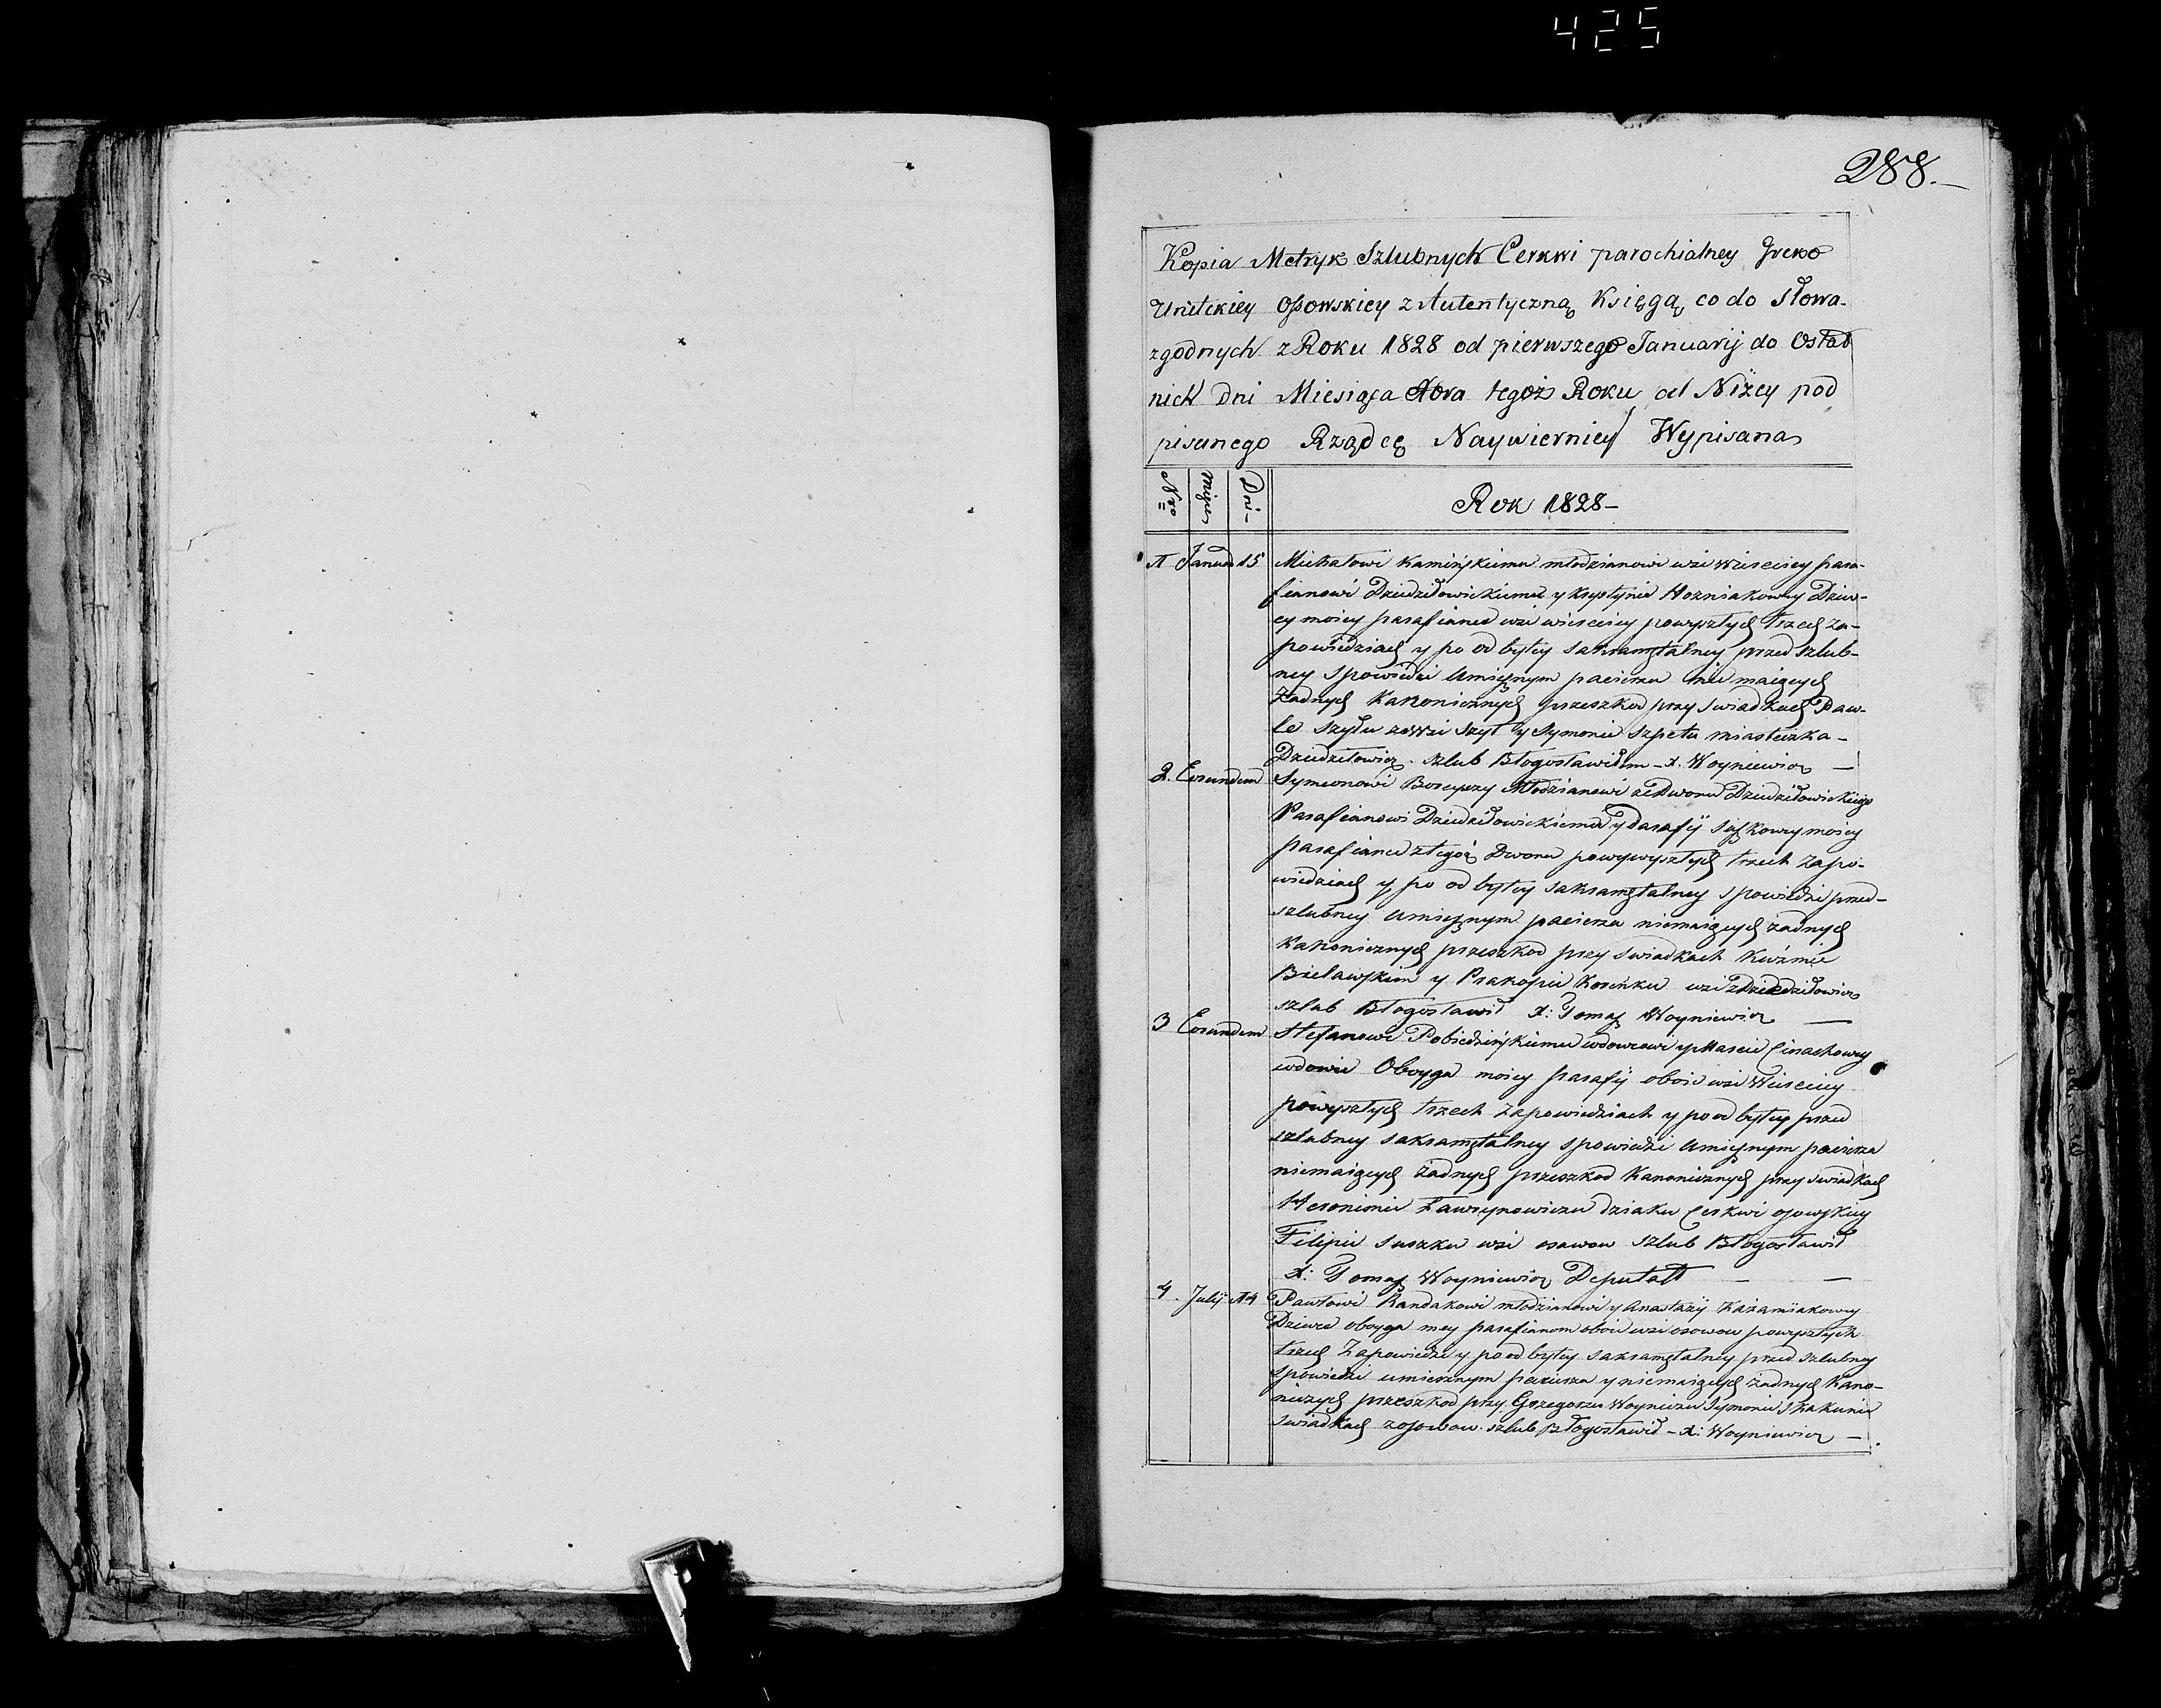 425
288.
Kopia Metryk Szlubnych Cerkwi parochialney Greko
Unitckiey Ossowskiey z Autentyczną Księgą co do Słowa
zgodnych z Roku 1828 od pierwszego Januarij do Ostat
nich Dni Miesiąca Xbra tegoż Roku od Niżey pod
pisanego Rządcę Naywierniey Wypisana
Nro Dni
Rok 1828
1 Januar 15 Michałowi Kamińskiemu młodzianowi wsi para-
fianowi Dziedziłowickiemu y Krystynie Hozniakowey Dziew-
cy moiey parafiance wsi trzech za-
powiedziach y po odbytey sakramętalney przed szlub-
ney spowiedzi Umieięnym pacierza nie maiących
Żadnych Kanonicznych przeszkod przy swiadkach Paw-
le Szydu ze wsi Szyt y Symonie Szpetu miasteczka
Dziedziłowicz szlub Błogosławiłem - X. Woyniewicz
2. Eorundem Symeonowi Młodzianowi ze Dworu Dziedziłowickiego
Parafianowi Dziedziłowickiemu y moiey
parafiance z tegoż Dworu trzech zapo-
wiedziach y po odbytey sakramętalney spowiedzi przed-
szlubney Umieięnym pacierza niemaiących żadnych
Kanonicznych przeszkod przy swiadkach Kuźmie
Bielawskim y Prakopie Kosinku wsi z Dziedziłowicz
szlub Błogosławił X: Tomasz Woyniewicz
3 Eorundem Stefanowi Pobiedzińskiemu wdowcowi y Marcie
wdowie Oboyga moiey parafij oboie wsi
powyszłych trzech Zapowiedziach y po odbytey przed
szlubney sakramętalney spowiedzi Umieięnym pacierza
niemaiących żadnych przeszkod Kanonicznych przy swiadkach
Heronimie Ławrynowiczu dziaku Cerkwi osowskiey
Filipie Suszku wsi osowow szlub Błogosławił
X: Tomasz Woyniewicz Deputatt
4. Julij 14 Pawłowi Randakowi młodzianowi y Anastazij
Dziewce oboyga mey parafianom oboie wsi osowow powyszłych
trzech Zapowiedzi y po odbytey sakramętalney przed szlubney
spowiedzi umieiennym pacierza y niemaiących żadnych Kano-
nicznych przeszkod przy Grzegorzu Woyniczu Symonie Skakunie
swiadkach z osowow szlub Błogosławił - X: Woyniewicz